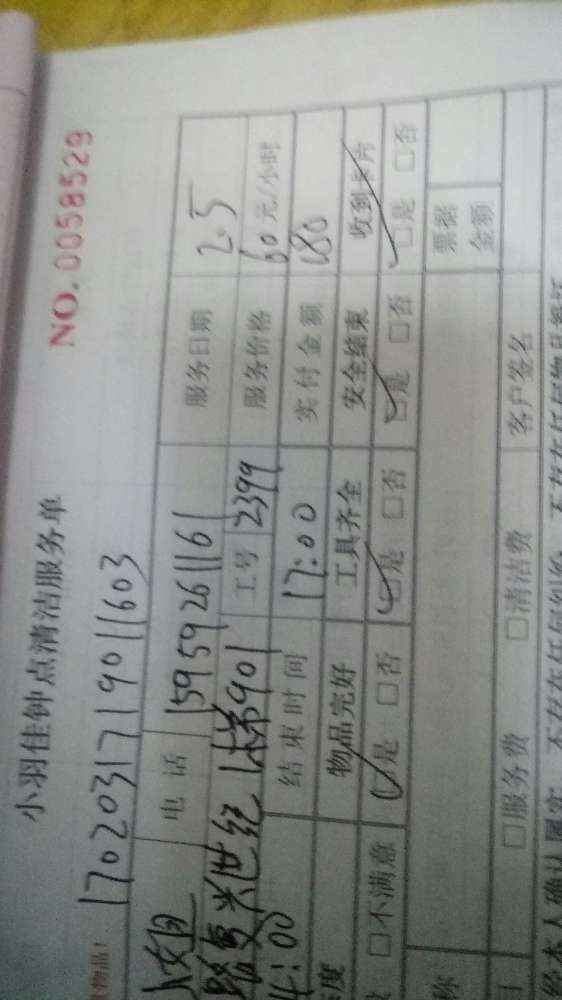 小羽佳钟点清洁服务单
NO. 0058529
物品!
1702031719011603
小姐 电话 15959261161 服务日期 2.5
路复兴世纪1梯901 工号 2399 服务价格 60元/小时
4:00 结束时间 17:00 实付金额 180
度 物品完好 工具齐全 安全结束 收到卡片
□不满意 □是 □否 □是 □否 □是 □否 □是 □否
称 票据金额
□服务费 □清洁费 客户签名